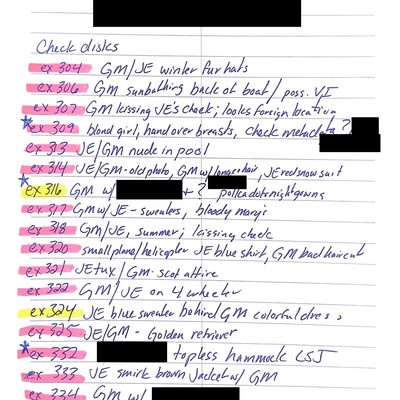 Check disks
ex 304 GM/JE winter fur hats
ex 306 GM sunbathing back of boat / poss. VI
ex 307 GM kissing JE's cheek; looks foreign location
* ex 309 blond girl, hand over breasts, check metadata?
ex 313 JE/GM nude in pool
ex 314 JE/GM-old photo, GM w/ longer hair, JE red snow suit
* ex 316 GM w/ + ? polka dot nightgowns
ex 317 GM w/JE - sweaters, bloody marys
ex 318 GM/JE, summer; kissing cheek
ex 320 small plane/helicopter JE blue shirt, GM bad haircut
ex 321 JE tux/GM- scot attire
ex 322 GM/JE on 4 wheeler
ex 324 JE blue sweater behind GM colorful dress
ex 325 JE/GM - Golden retriever
* ex 332 topless hammock LSJ
ex 333 JE smirk brown Jacket w/ GM
ex 334 GM w/